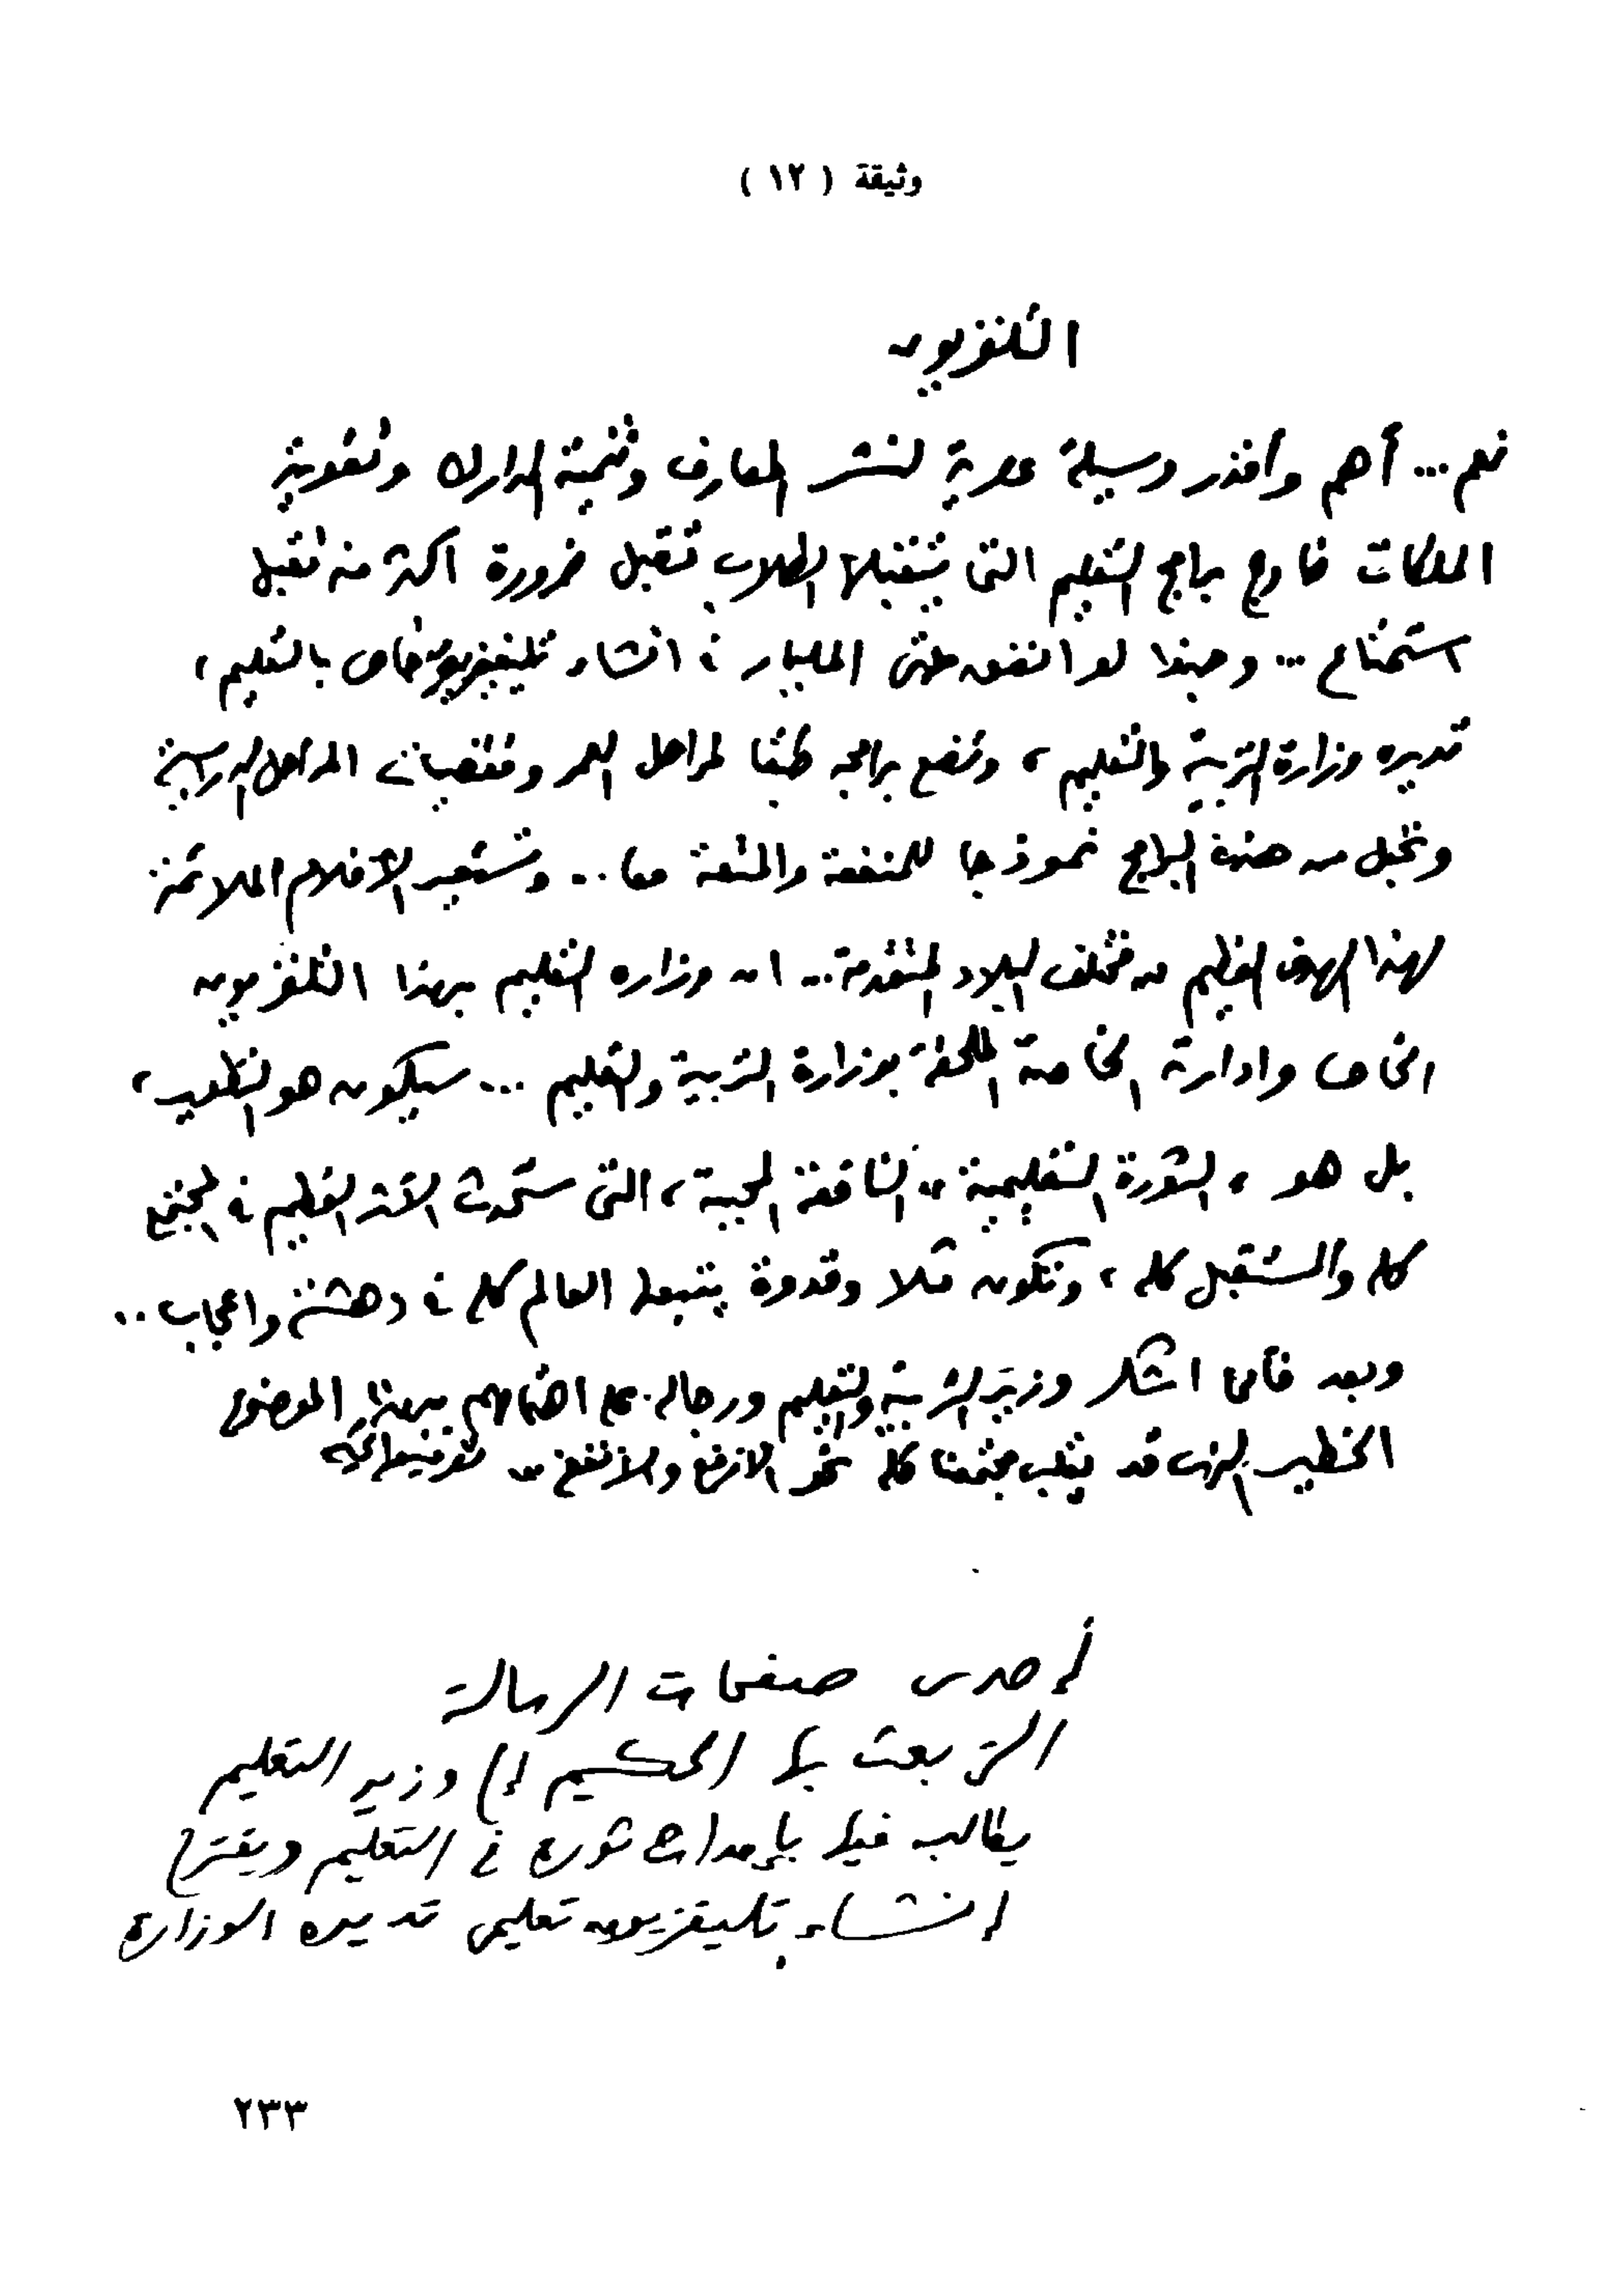 وثيقة ( ١٢ )
التلفزيون
نعم ... أهم وأقدر وسيلة عصرية لنشر المعارف وتنمية المدارك وتقوية
الملكات خارج برامج التعليم التى يتقبلها الطلاب تقبل ضرورة اكثر منه تقبل
استمتاع ... وحبذا لو انفق حتى المليار فى انشاء تليفزيون خاص بالتعليم ،
تديره وزارة التربية والتعليم ، وتضع برامجه طبقا لمراحل العمر ومقتضيات المراحل الدراسية
وتجعل من هذه البرامج نموذجا للمنفعة والمتعة معا .. وتستعير الأفلام الملائمة
لهذا الهدف العظيم من مختلف البلاد المتقدمة .. ان وزاره التعليم بهذا التلفزيون
الخاص وادارته الخاصة الملحقة بوزارة التربية والتعليم ... سيكون هو التطوير ،
بل هو " الثورة التعليمية " النافعة المحببة ، التى ستحدث الأثر العظيم فى المجتمع
كله والمستقبل كله ، وتكون مثلا وقدوة يتبعها العالم كله فى دهشة واعجاب ..
وبعد فأنا اشكر وزير التربية والتعليم ورجاله على اهتمامهم بهذا الموضوع
الخطير الذى قد يقلب مجتمعنا كله نحو الارفع والأنفع .. توفيق الحكيم
إحدى صفحات الرسالة
التى بعث بها الحكيم إلى وزير التعليم
يطالب فيها بإحداث ثورة فى التعليم ويقترح
إنشاء تليفزيون تعليمى تديره الوزارة
٢٣٣